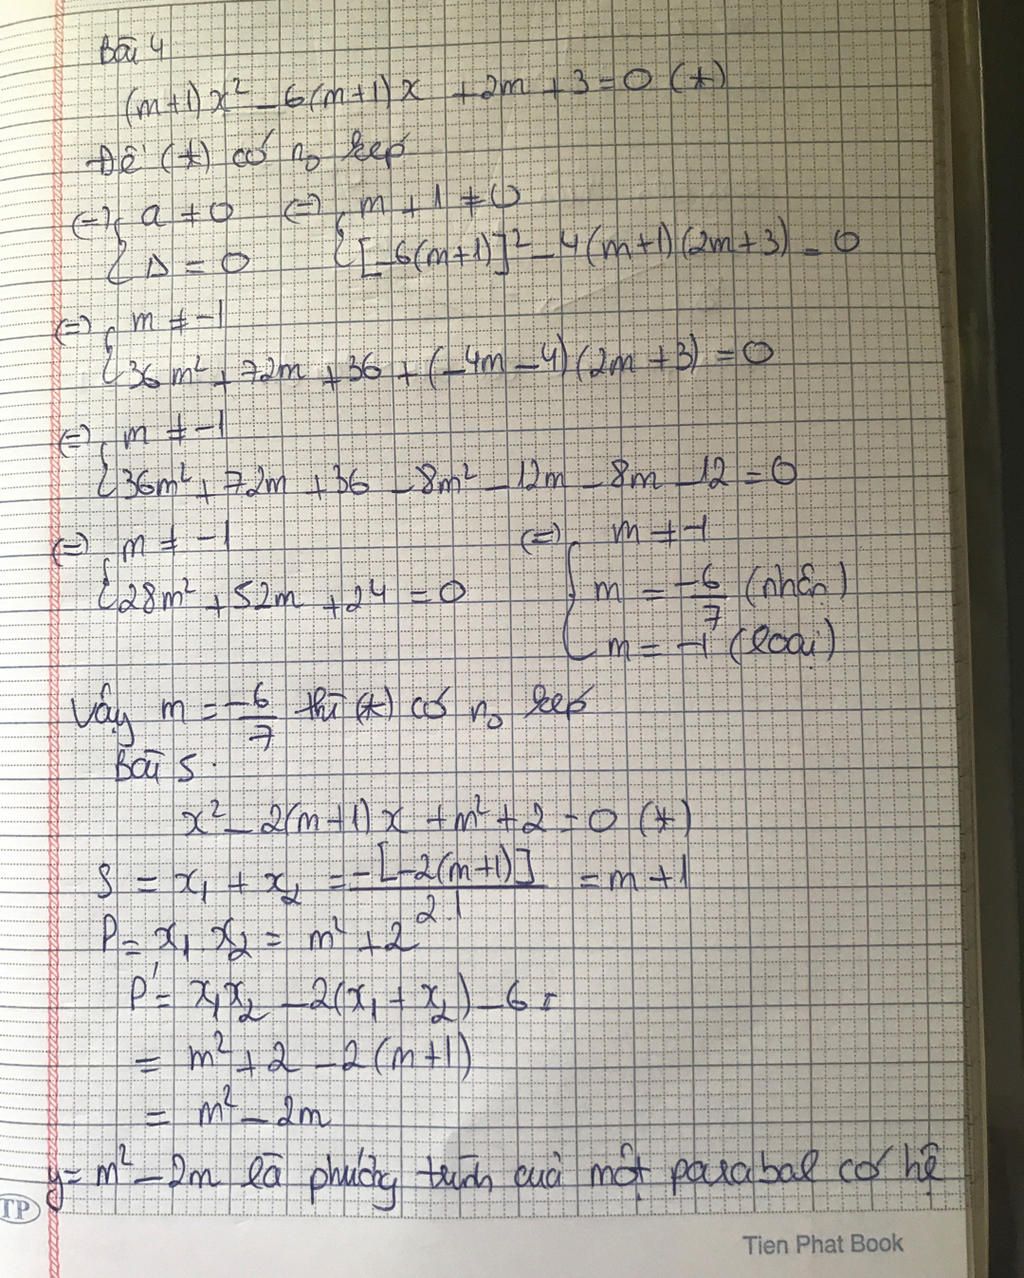 Bài 4
(m+1)x² - 6(m+1)x + 2m + 3 = 0 (*)
Để (*) có no kép
(=) { a ≠ 0 (=) { m + 1 ≠ 0
{ Δ = 0 { [-6(m+1)]² - 4(m+1)(2m+3) = 0
(=) { m ≠ -1
{ 36m² + 72m + 36 + (-4m - 4)(2m + 3) = 0
(=) { m ≠ -1
{ 36m² + 72m + 36 - 8m² - 12m - 8m - 12 = 0
(=) { m ≠ -1 (=) { m ≠ -1
{ 28m² + 52m + 24 = 0 { m = -6/7 (nhận)
{ m = -1 (loại)
Vậy m = -6/7 thì (*) có no kép
Bài 5.
x² - 2(m+1)x + m² + 2 = 0 (*)
S = x₁ + x₂ = -[-2(m+1)]/2.1 = m + 1
P = x₁ x₂ = m² + 2
P' = x₁x₂ - 2(x₁ + x₂) - 6 =
= m² + 2 - 2(m+1)
= m² - 2m
y = m² - 2m là phương trình của một parabal có hệ
TP
Tien Phat Book